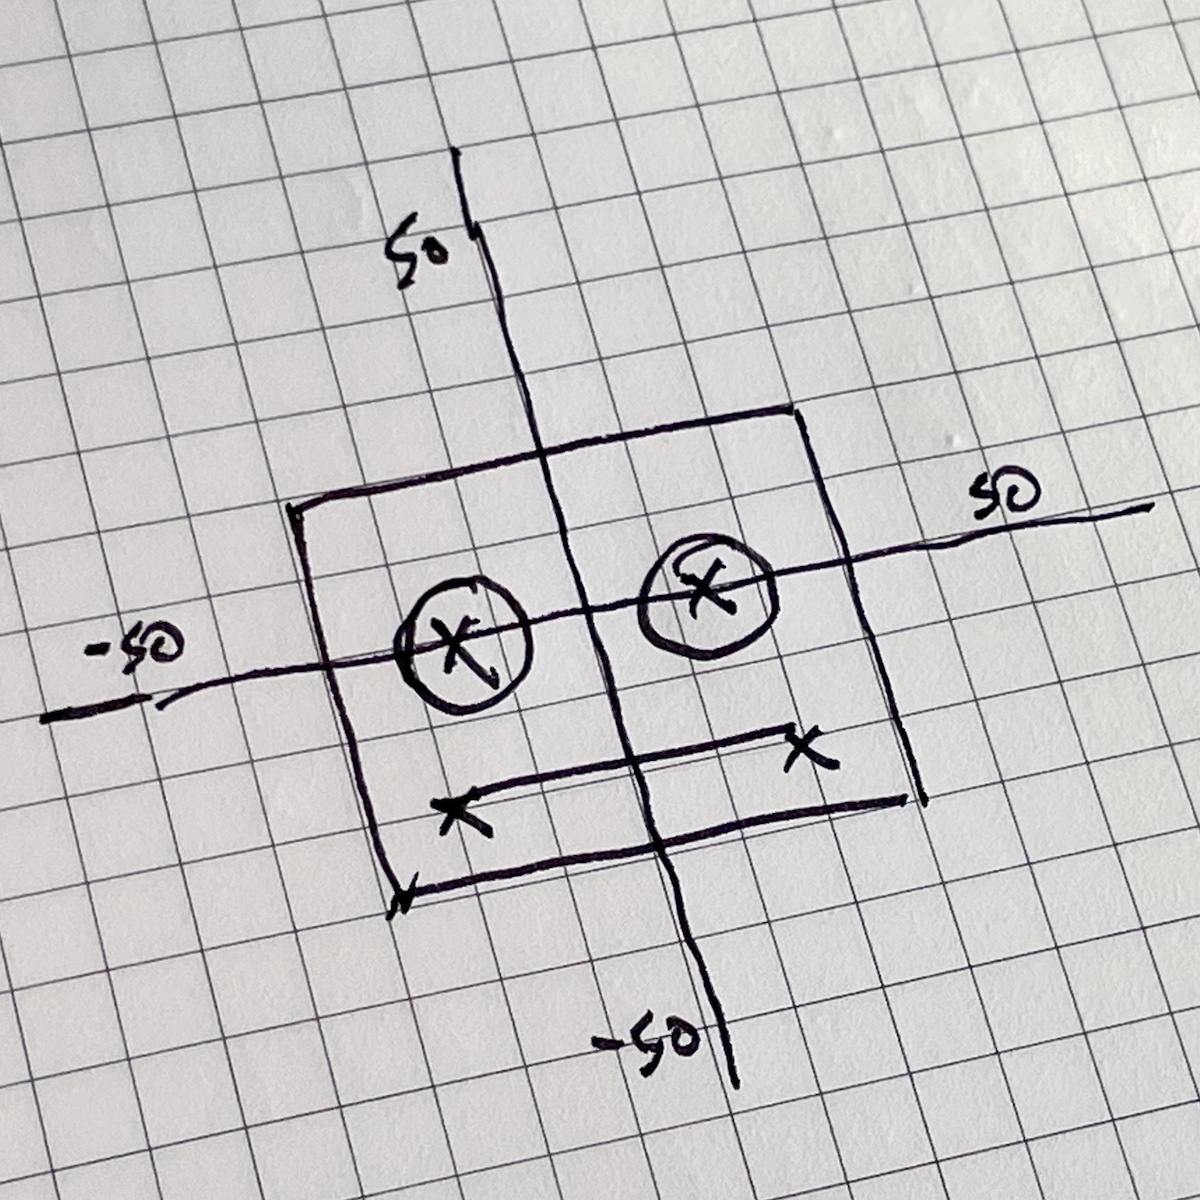 50
50
-50
-50